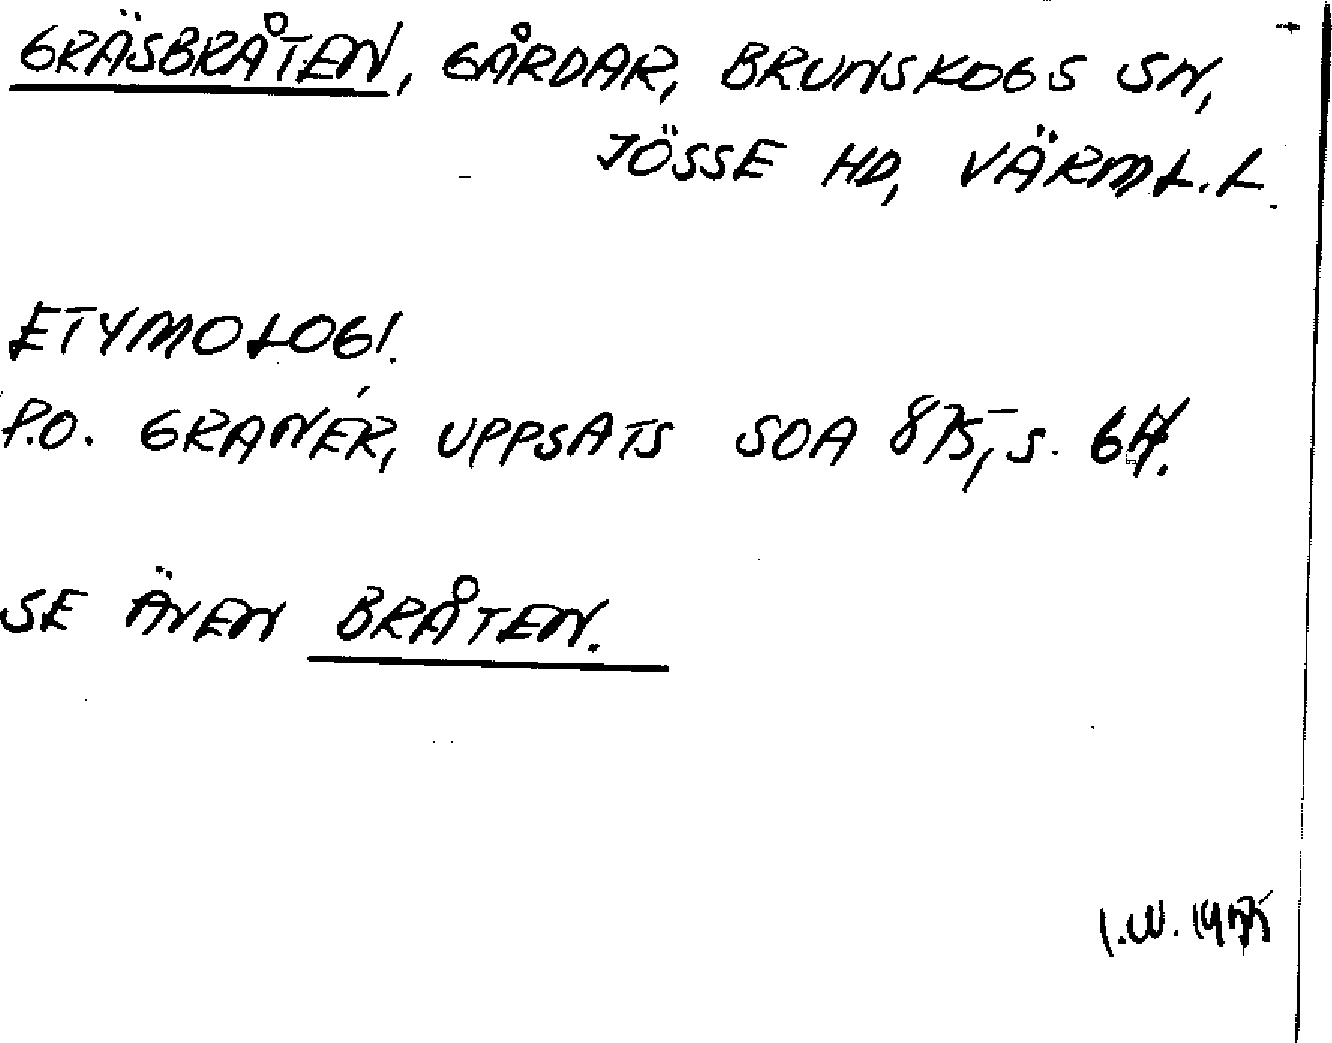 GRÄSBRÅTEN, GÅRDAR, BRUNSKOGS SN,
JÖSSE HD, VÄRML. L.
ETYMOLOGI.
P.O. GRANÉR, UPPSATS SOA 875, S.
SE ÄVEN BRÅTEN.
I.W. 1975